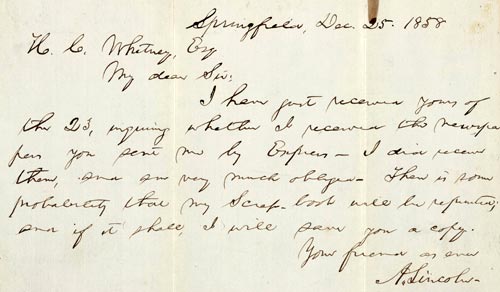 Springfield, Dec. 25. 1858
H. C. Whitney, Esq
My dear Sir:
I have just received yours of
the 23, inquiring whether I received the newspa-
pers you sent me by Express— I did receive
them, and am very much obliged— There is some
probability that my Scrap-book will be reprinted;
and if it shall, I will save you a copy.
Your friend as ever
A. Lincoln—